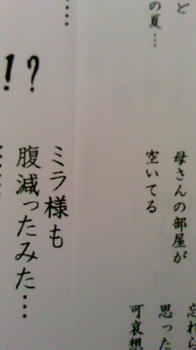 ど
の夏…
母さんの部屋が
空いてる
忘れら
思った
可哀想
…
!?
ミラ様も
腹減ったみた…